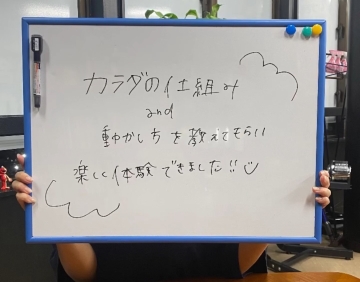 カラダの仕組み
and
動かし方を教えてもらい
楽しく体験できました!!